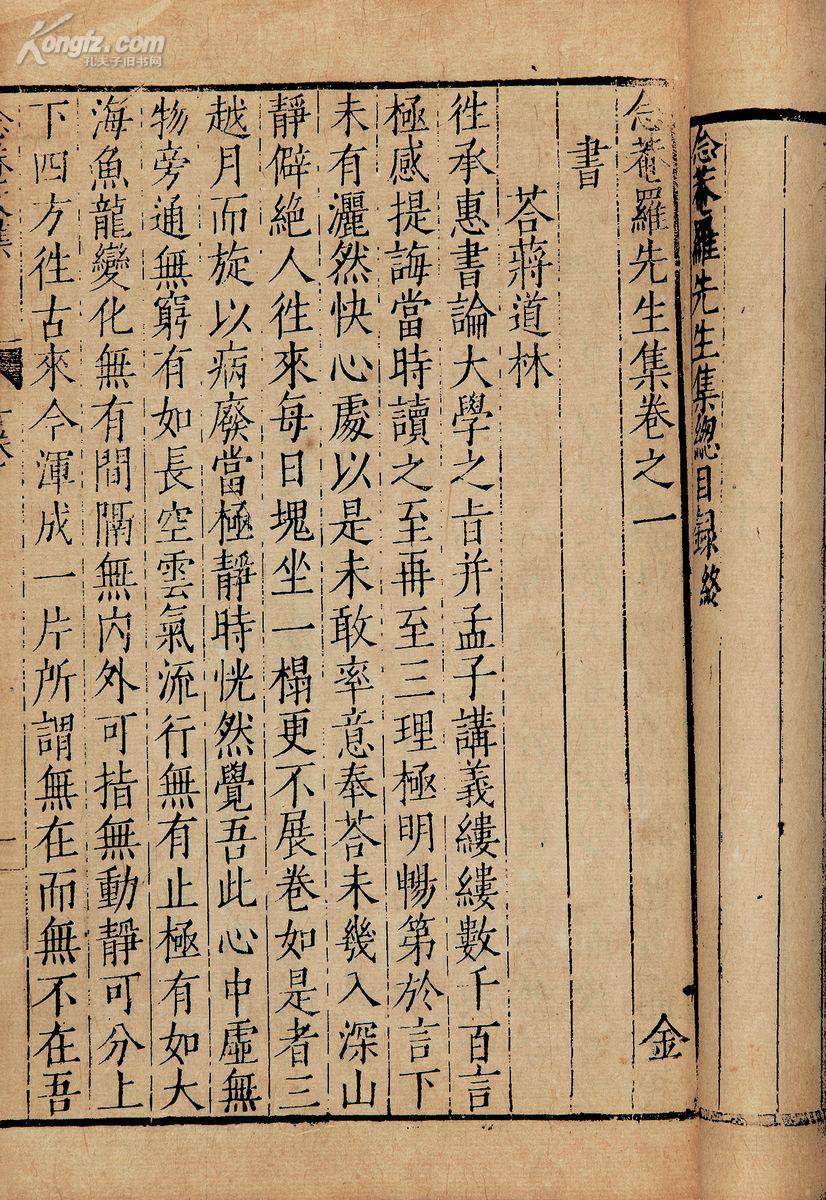 Kongfz.com
孔夫子旧书网
念菴羅先生集總目録終
念菴羅先生集卷之一 金
書
荅蔣道林
徃承惠書論大學之㫖并孟子講義縷縷數千百言
極感提誨當時讀之至再至三理極明暢第於言下
未有灑然快心處以是未敢率意奉荅未幾入深山
靜僻絶人徃來每日塊坐一榻更不展卷如是者三
越月而旋以病廢當極靜時恍然覺吾此心中虛無
物旁通無窮有如長空雲氣流行無有止極有如大
海魚龍變化無有間隔無内外可指無動靜可分上
下四方徃古來今渾成一片所謂無在而無不在吾